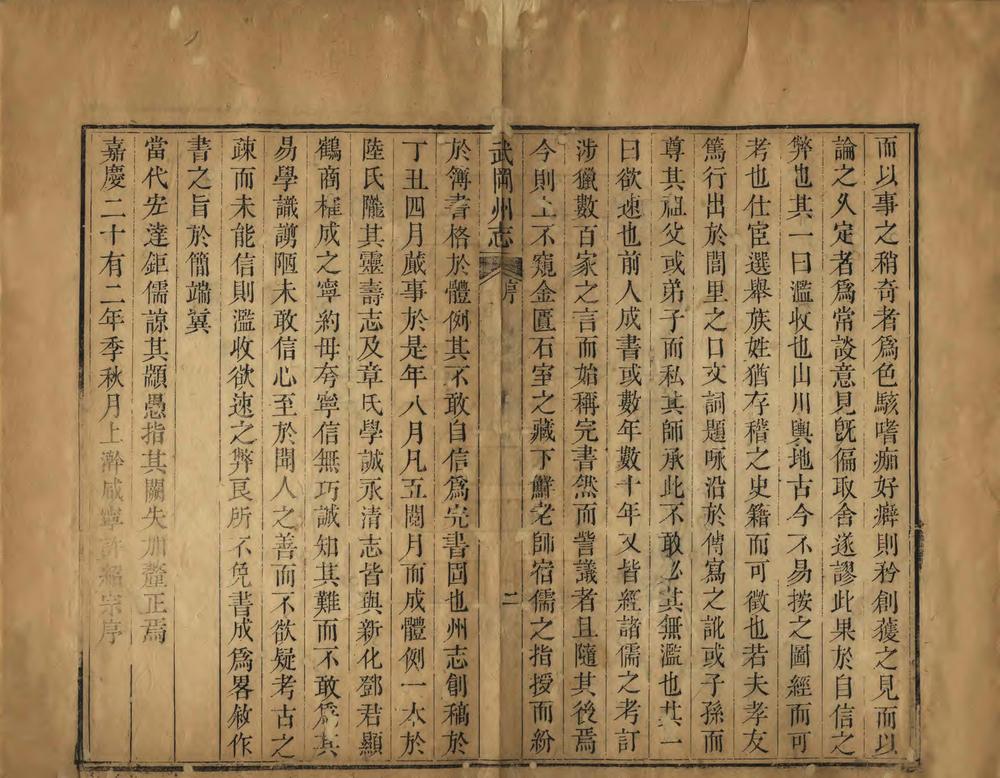 而以事之稍奇者爲色駭嗜痂好癖則矜創獲之見而以
論之久定者爲常談意見旣偏取舍遂謬此果於自信之
弊也其一曰濫收也山川輿地古今不易按之圖經而可
考也仕宦選舉族姓猶存稽之史籍而可徵也若夫孝友
篤行出於閭里之口文詞題咏沿於傳寫之訛或子孫而
尊其祖父或弟子而私其師承此不敢必其無濫也其一
曰欲速也前人成書或數年數十年又皆經諸儒之考訂
涉獵數百家之言而始稱完書然而訾議者且隨其後焉
今則上不窺金匱石室之藏下鮮老師宿儒之指授而紛
武岡州志 序 二
於簿書格於體例其不敢自信爲完書固也州志創稿於
丁丑四月蕆事於是年八月凡五閱月而成體例一本於
陸氏隴其靈壽志及章氏學誠永清志皆與新化鄧君顯
鶴商榷成之寧約毋夸寧信無巧誠知其難而不敢爲其
易學識譾陋未敢信心至於聞人之善而不欲疑考古之
疎而未能信則濫收欲速之弊良所不免書成爲畧敘作
書之旨於簡端冀
當代宏達鉅儒諒其顓愚指其闕失加釐正焉
嘉慶二十有二年季秋月上澣咸寧許紹宗序